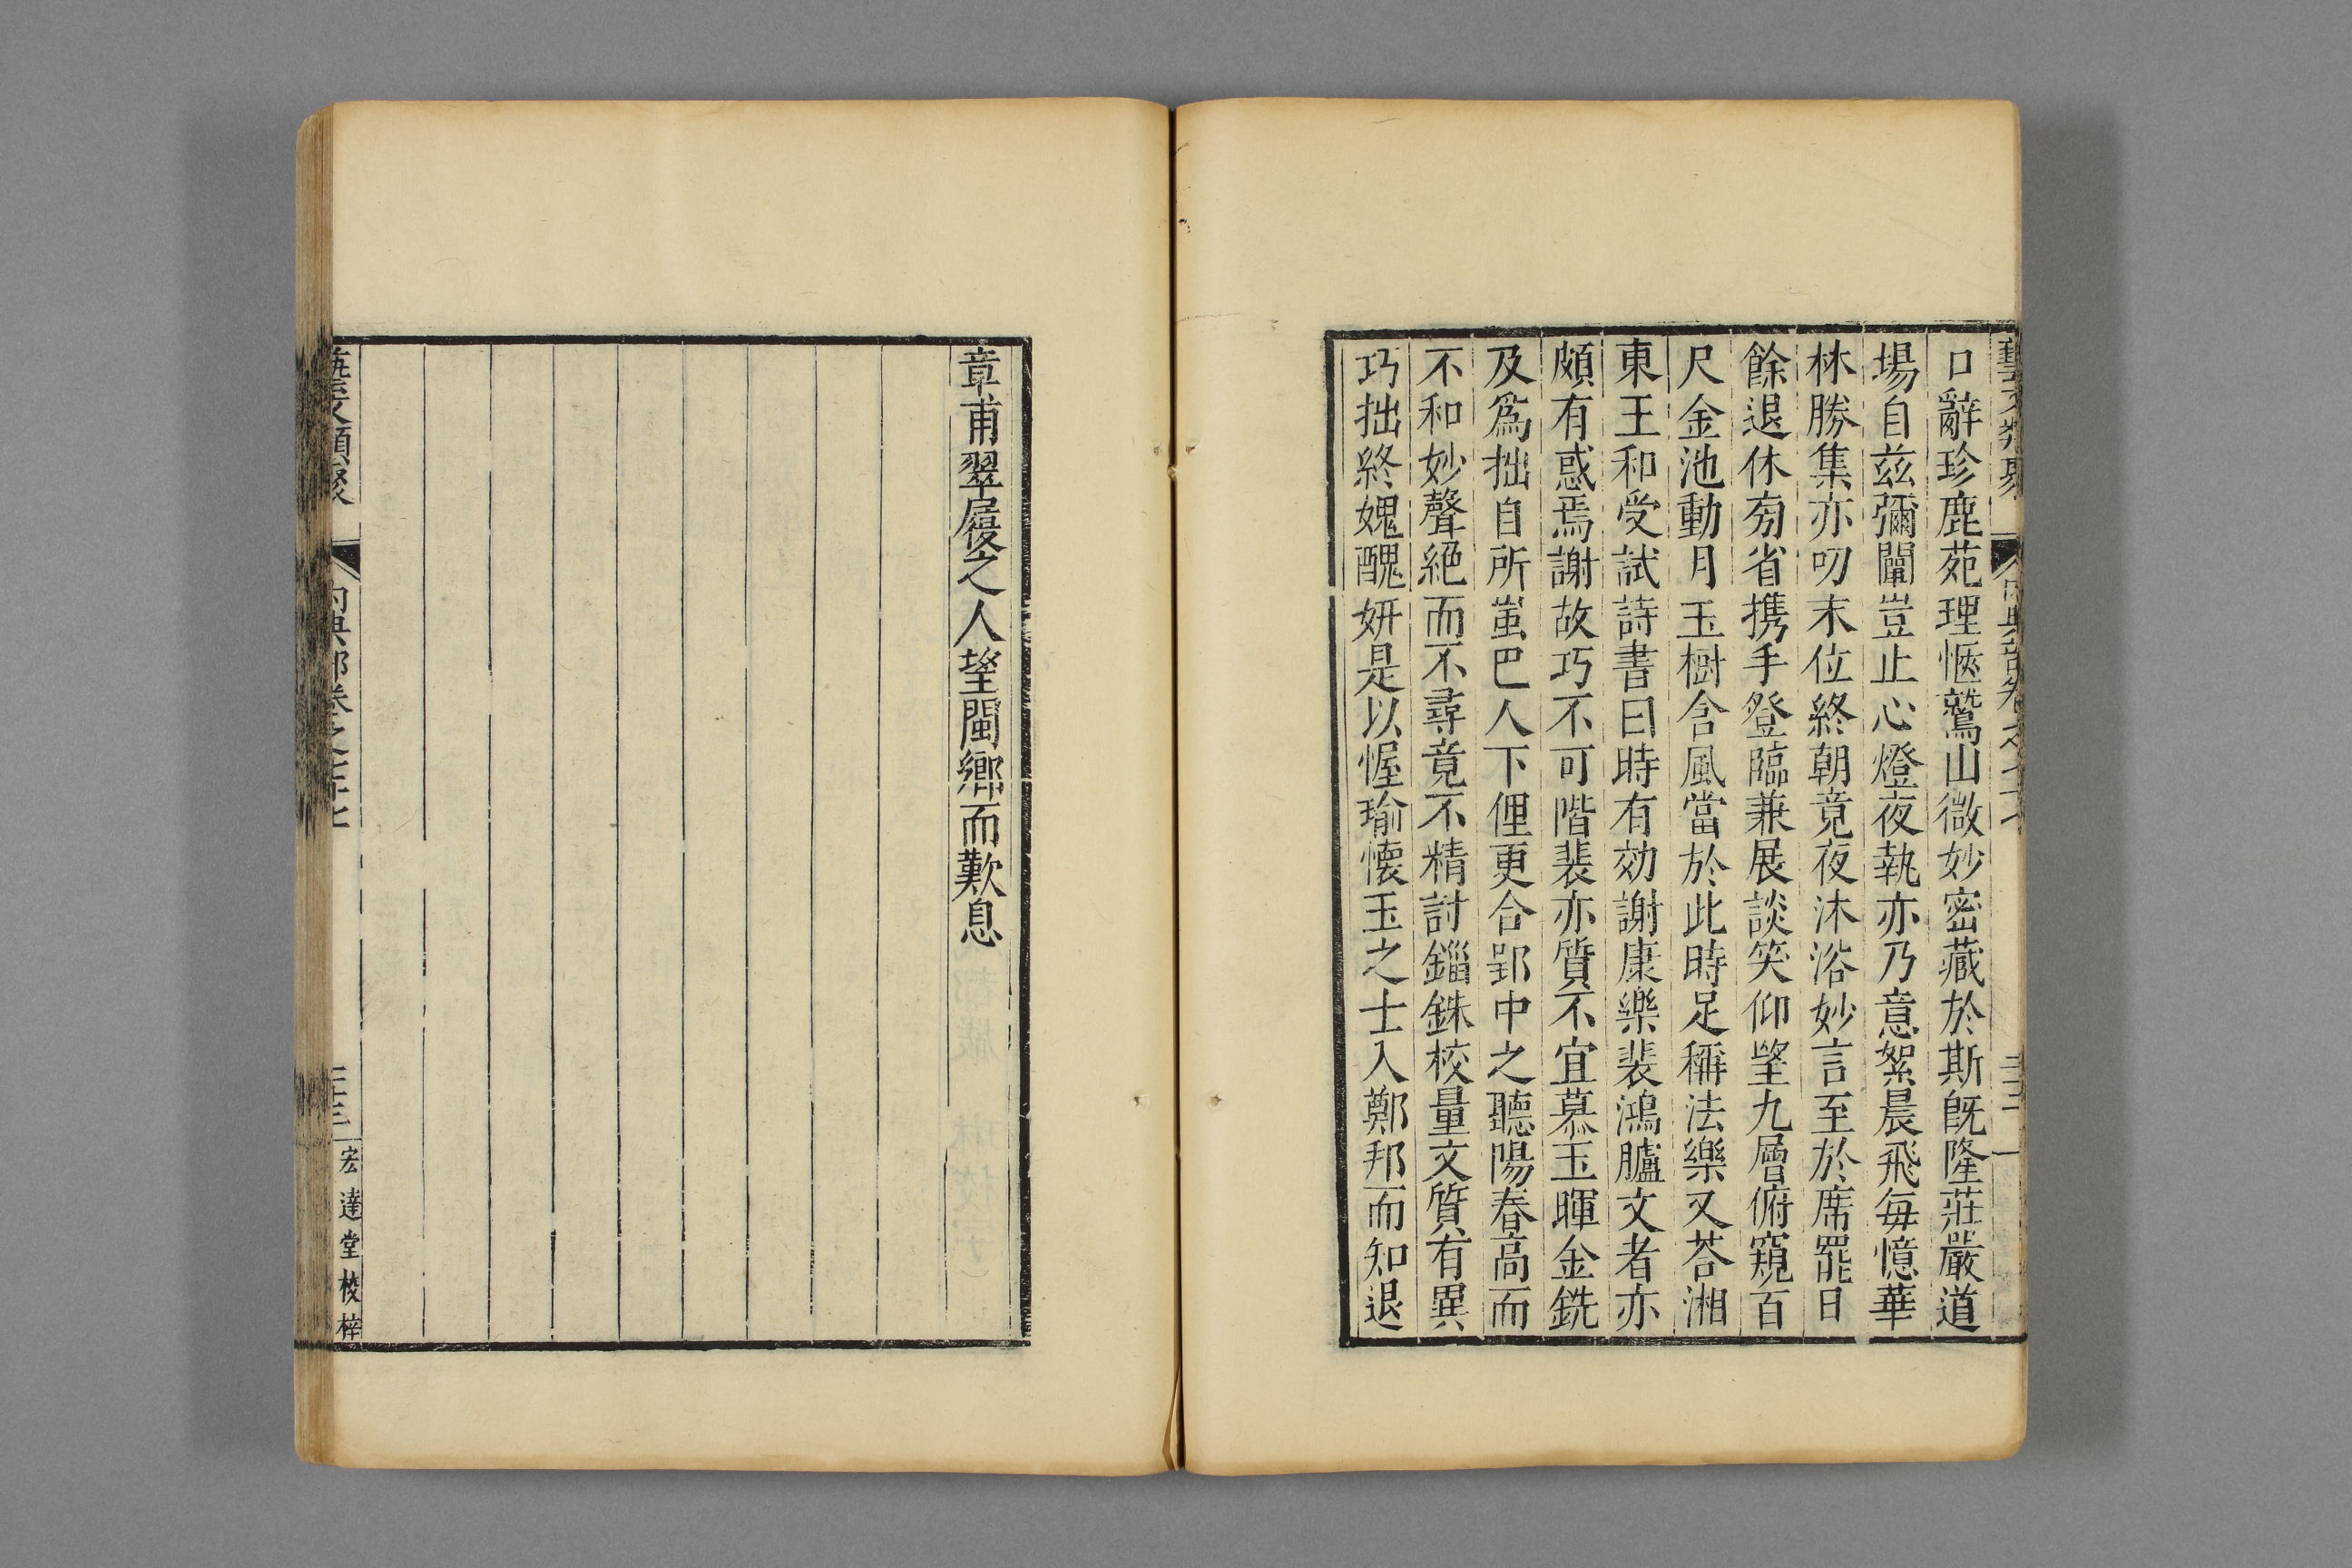 口辭珍鹿苑理愜鷲山微妙密藏於斯旣隆莊嚴道
場自兹彌闡豈止心燈夜執亦乃意絮晨飛每憶華
林勝集亦叨末位終朝竟夜沐浴妙言至於席罷日
餘退休旁省携手登臨兼展談笑仰望九層俯窺百
尺金池動月玉樹含風當於此時足稱法樂又荅湘
東王和受試詩書曰時有効謝康樂裴鴻臚文者亦
頗有惑焉謝故巧不可階裴亦質不宜慕玉暉金銑
及爲拙自所蚩巴人下俚更合郢中之聽陽春高而
不和妙聲絕而不尋竟不精討錙銖校量文質有異
巧拙終媿醜妍是以握瑜懷玉之士入鄭邦而知退
章甫翠履之人望閩鄉而歎息
宏達堂校梓